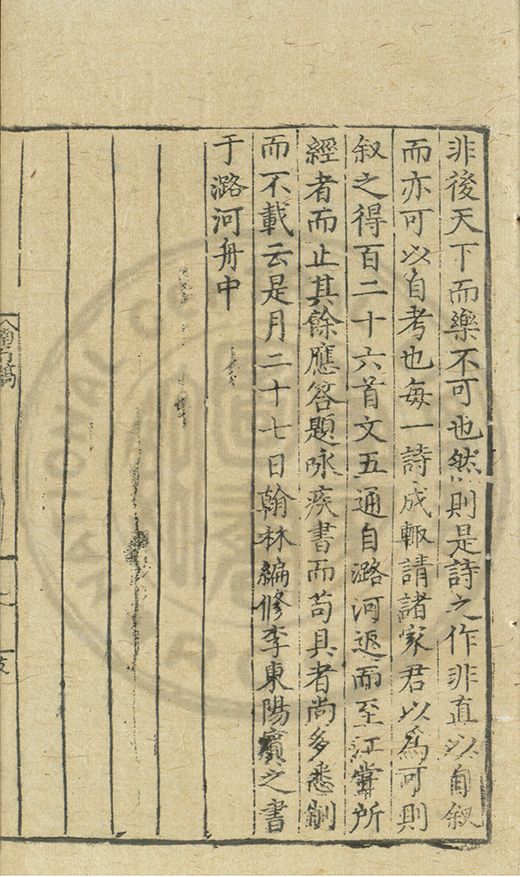 非後天下而樂不可也然則是詩之作非直以自叙
而亦可以自考也每一詩成輙請諸家君以為可則
叙之得百二十六首文五通自潞河返而至江嘗所
經者而止其餘應答題咏疾書而苟具者尚多悉刪
而不載云是月二十七日翰林編修李東陽賓之書
于潞河舟中
南行稿